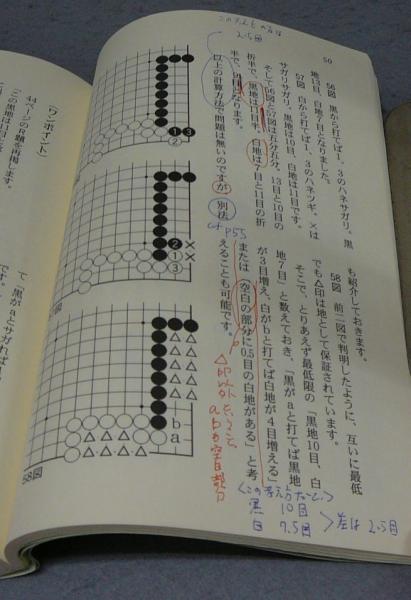 50
56図 黒から打てば1、3のハネサガリ。黒
地13目、白地7目となりました。
57図 白から打てば1、3のハネツギ。×は
サガリサガリ。黒地は10目、白地は11目です。
そして56図と57図は五分五分。13目と10目の
折半で、黒地は11目半。白地は7目と11目の折
半で、9目になります。
以上の計算方法で問題は無いのですが、別法
も紹介しておきます。
58図 前二図で判明したように、互いに最低
でも△印は地として保証されています。
そこで、とりあえず最低限の「黒地10目、白
地7目」と数えておき、「黒がaと打てば黒地
が3目増え、白がbと打てば白地が4目増える」
または「空白の部分に0.5目の白地がある」と考
えることも可能です。
2.5目
cf P55
△印以外
a bが空白部分
くこの考え方だと、
黒 10目
白 7.5目
差は2.5目
❶
❸
②
❷
①
③
×
×
b
a
58図
〔ワンポイント〕
44ページのR題を再掲します。
て、黒がaとサガれば
です。